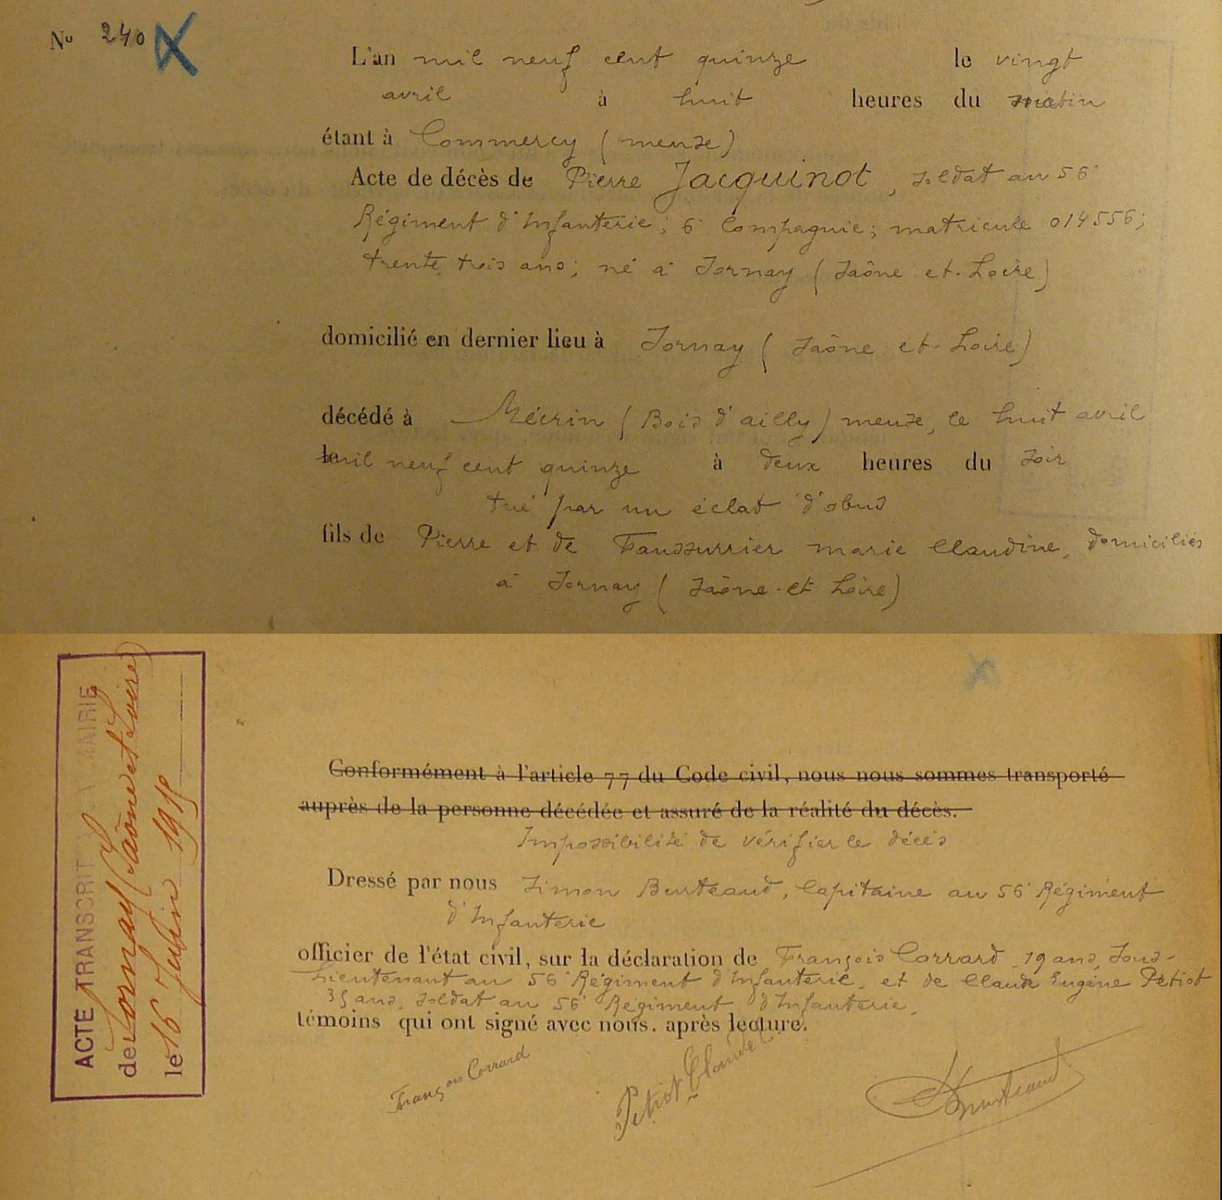 No 240
L'an mil neuf cent quinze le vingt
avril à huit heures du matin
étant à Commercy (meuse)
Acte de décès de Pierre Jacquinot, soldat au 56e
Régiment d'Infanterie; 6e Compagnie; matricule 014556;
trente trois ans; né à Sornay (Saône et-Loire)
domicilié en dernier lieu à Sornay (Saône et-Loire)
décédé à Mécrin (Bois d'ailly) meuse, le huit avril
le mil neuf cent quinze à deux heures du soir
tué par un éclat d'obus
fils de Pierre et de Faussurrier marie Claudine, domiciliés
à Sornay (Saône-et Loire)
ACTE TRANSCRIT A LA MAIRIE
de Sornay (Saône et Loire)
le 16 Juin 1915
Conformément à l'article 77 du Code civil, nous nous sommes transporté
auprès de la personne décédée et assuré de la réalité du décès.
Impossibilité de vérifier le décès
Dressé par nous Simon Burteaud, Capitaine au 56e Régiment
d'Infanterie
officier de l'état civil, sur la déclaration de François Corrard, 19 ans, Sous-
Lieutenant au 56e Régiment d'Infanterie, et de Claude Eugène Petiot
35 ans, soldat au 56e Régiment d'Infanterie,
témoins qui ont signé avec nous. après lecture.
François Corrard
Petiot Claude
Burteaud